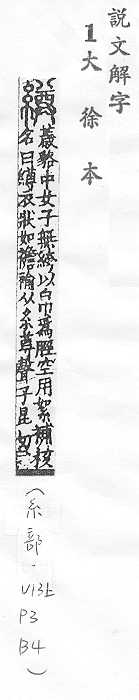 説文解字
1大徐本
繜薉貉中女子無絝以帛爲脛空用絮補核
名曰繜衣狀如襜褕从糸尊聲子昆切
(糸部·V13上
P3
B4)